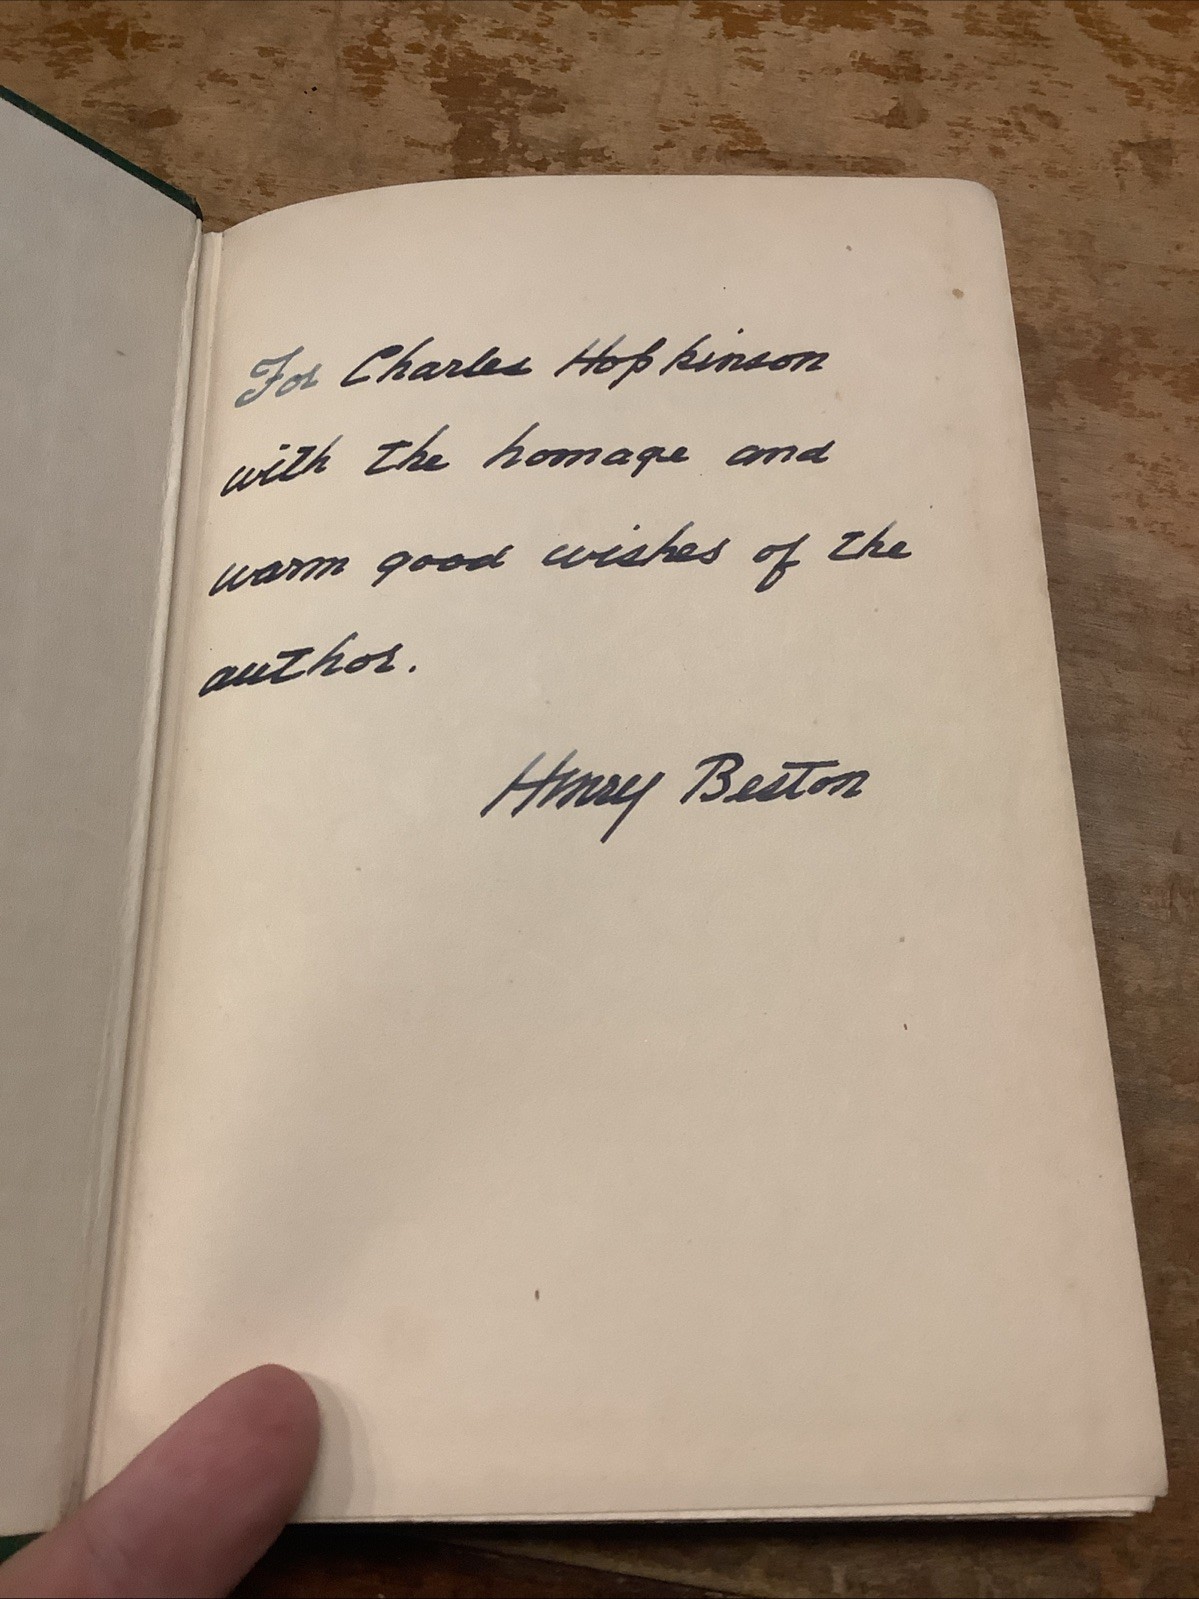 For Charles Hopkinson
with the homage and
warm good wishes of the
author.
Henry Beston